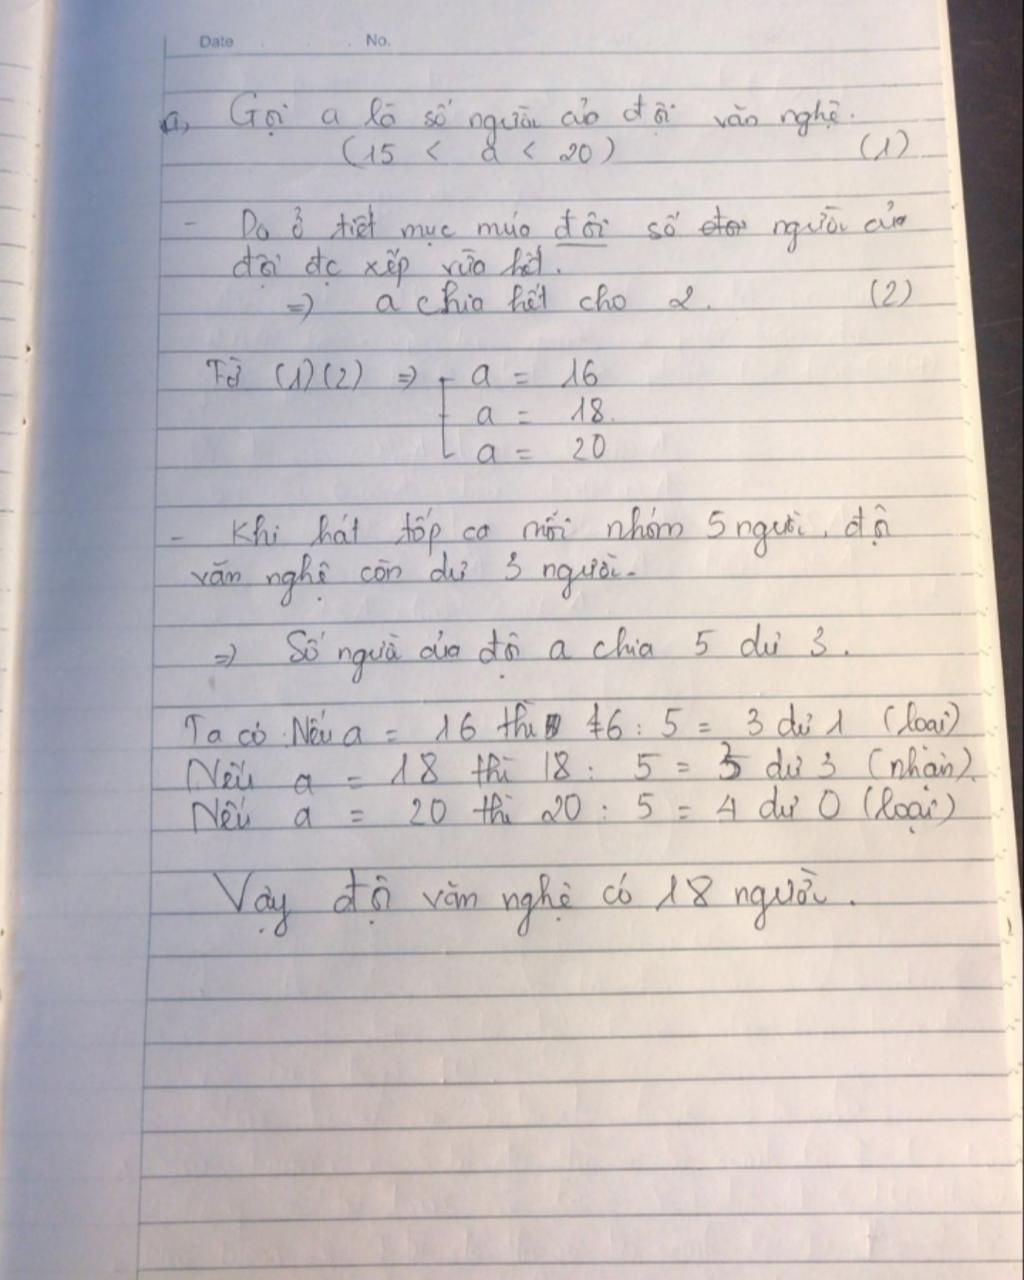 Date No.
a, Gọi a là số người của đội văn nghệ.
(15 < a < 20) (1)
- Do ở tiết mục múa đôi số người của
đội đc xếp vừa hết.
=> a chia hết cho 2. (2)
Từ (1)(2) => a = 16
a = 18.
a = 20
- Khi hát tốp ca mỗi nhóm 5 người, đội
văn nghệ còn dư 3 người.
=> Số người của đội a chia 5 dư 3.
Ta có Nếu a = 16 thì 16 : 5 = 3 dư 1 (loại)
Nếu a = 18 thì 18 : 5 = 3 dư 3 (nhận).
Nếu a = 20 thì 20 : 5 = 4 dư 0 (loại)
Vậy đội văn nghệ có 18 người.